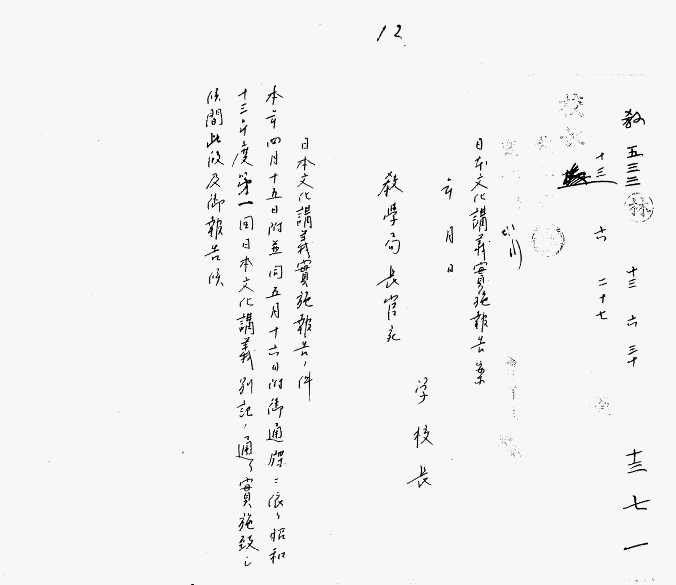 12
敎 五三三 林 十三 六 三十 十三 七 一
十三 六 二十七
校長
日本文化講義實施報告案
年 月 日
学校長
敎學局長官宛
日本文化講義實施報告ノ件
本年四月十五日附並同五月十六日附御通牒ニ依リ昭和
十三年度第一回日本文化講義別記ノ通リ實施致シ
候間此段及御報告候